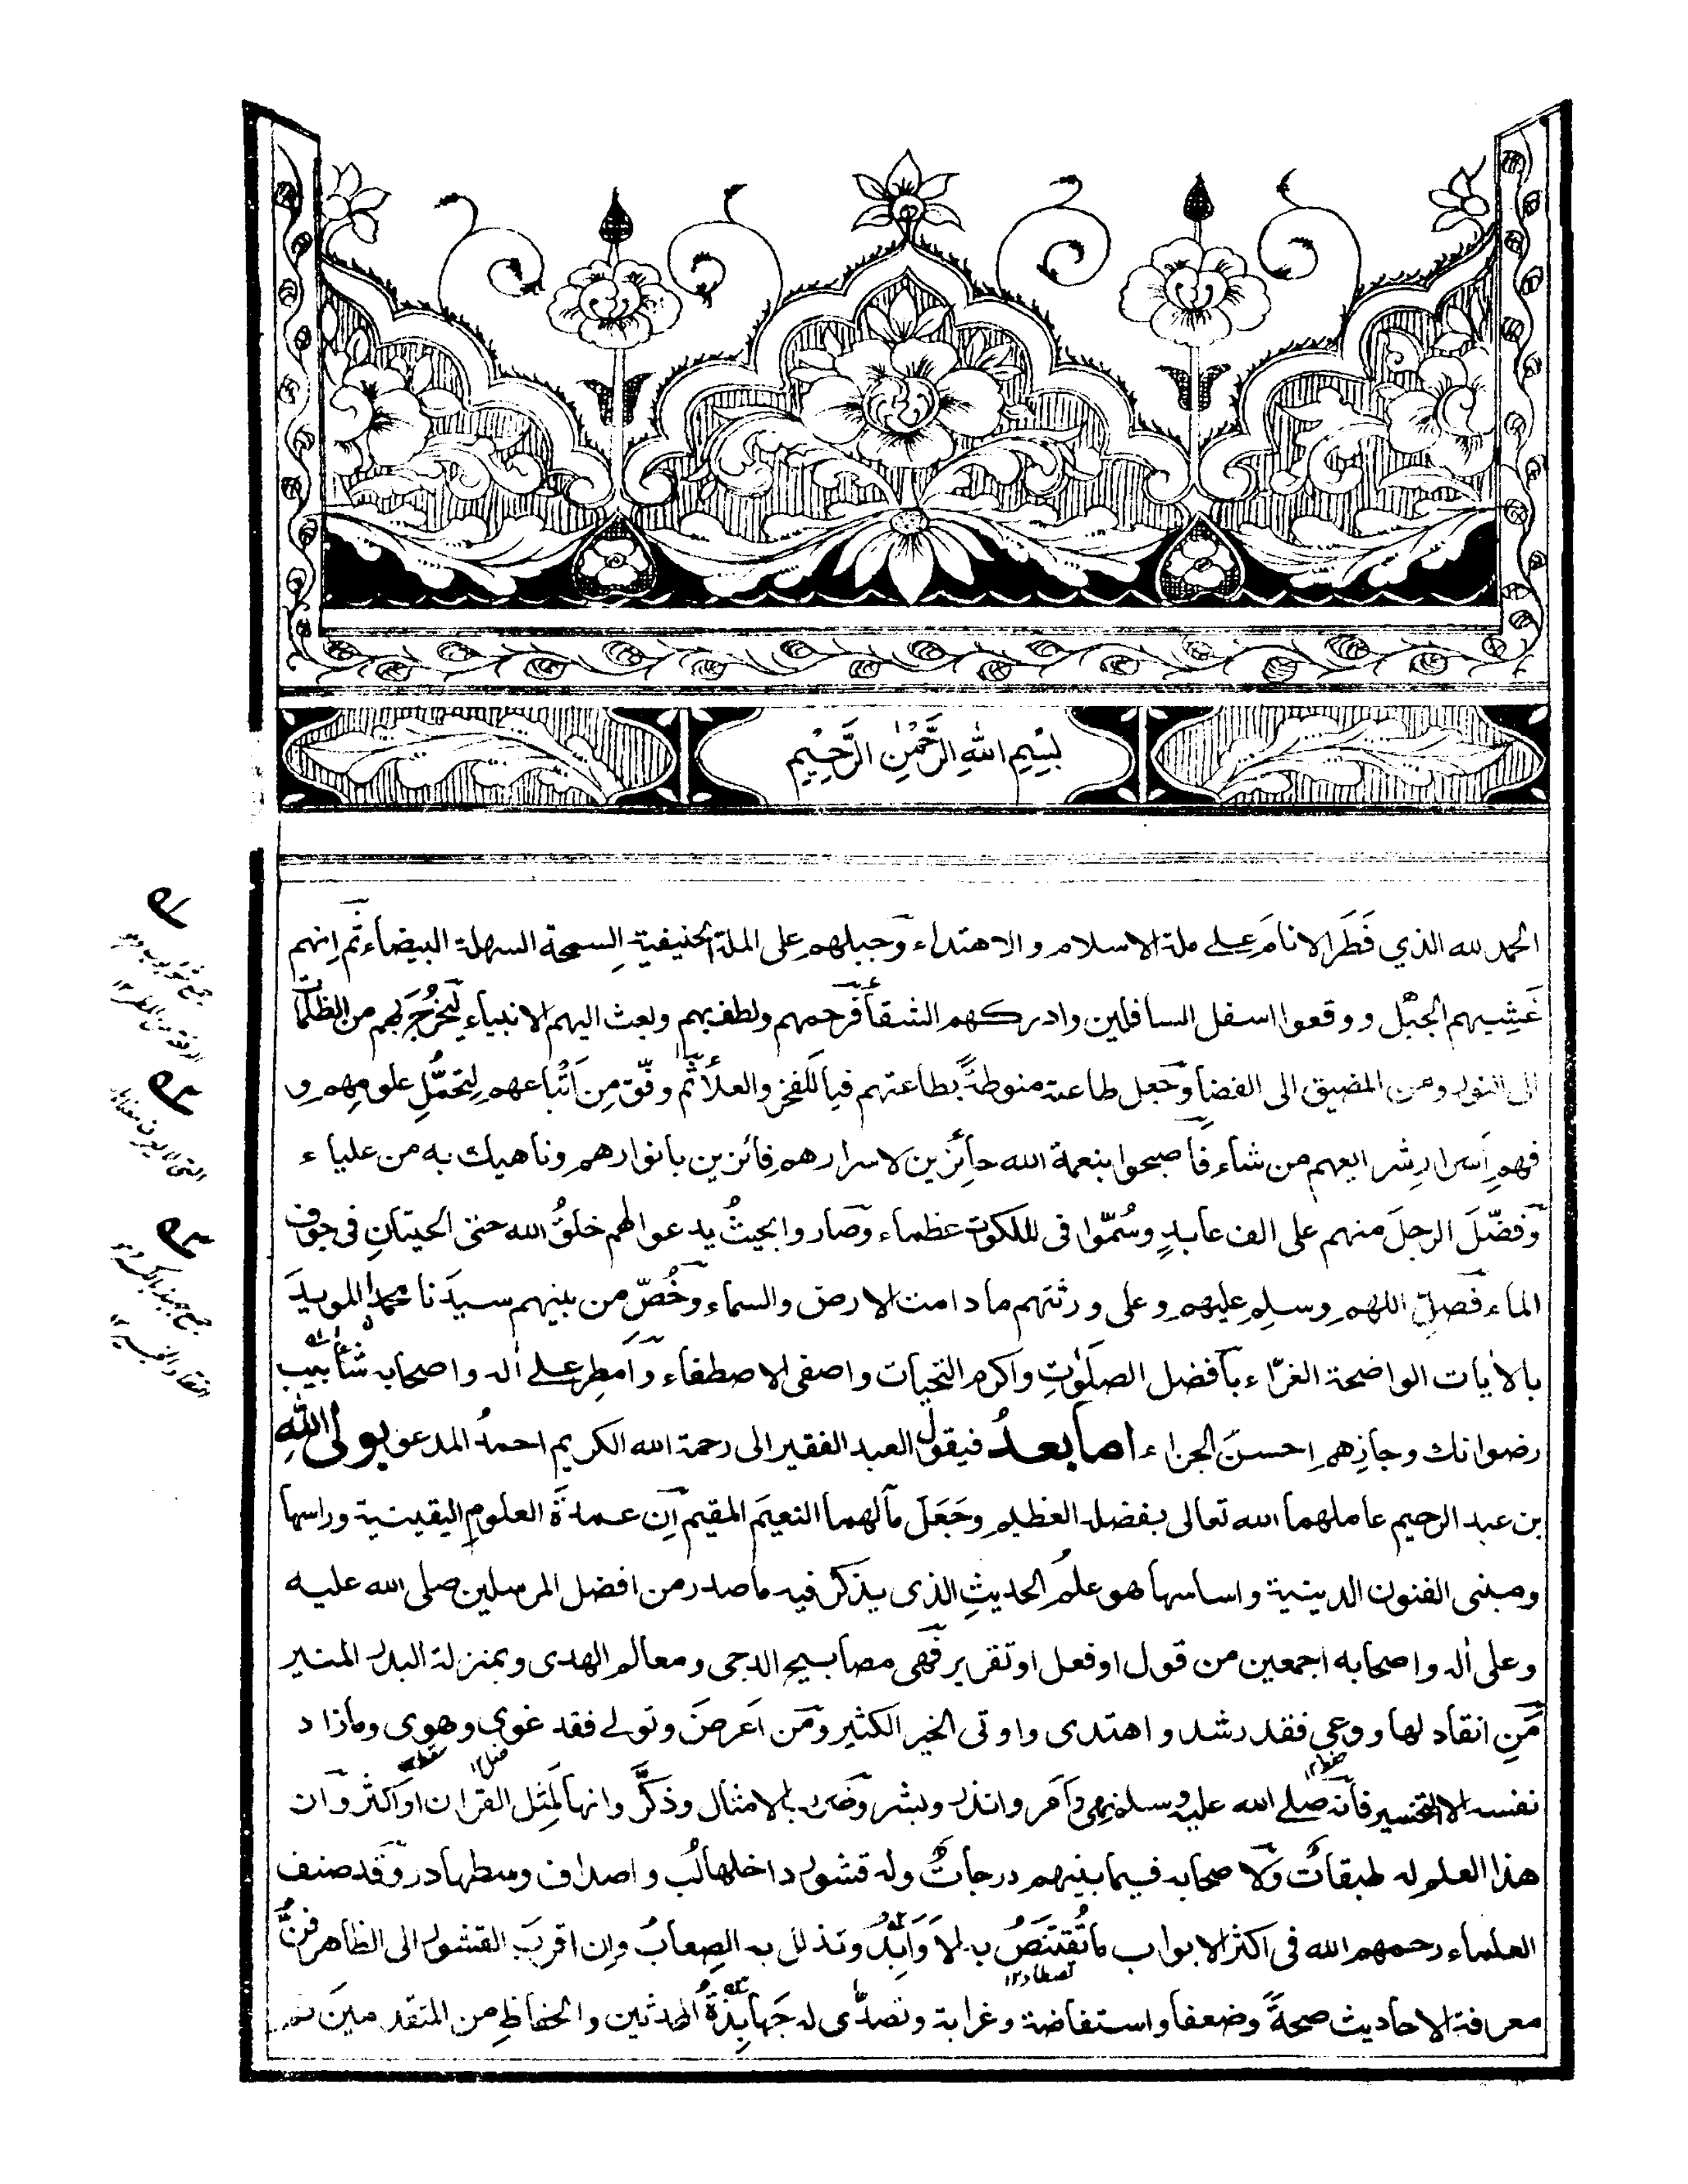 بِسْمِ اللهِ الرَّحْمٰنِ الرَّحِيْمِ
الحمد لله الذي فَطَرَ الانامَ على ملة الاسلام والاهتداء وجبلهم على الملة الحنيفية السمحة السهلة البيضاء ثم انهم
غَشِيهم الجهل ووقعوا اسفل السافلين وادركهم الشقاء فرحمهم ولطف بهم وبعث اليهم الانبياء ليُخرجَ بهم من الظلمات
الى النور ومن المضيق الى الفضاء وجعل طاعته منوطةً بطاعتهم فيا للفخر والعلاء ثم وفّق مِن اتْباعهم لِتحمُّلِ علومهم و
فهمِ اَسرار شرائعهم من شاء فاصبحوا بنعمة الله حائزين لاسرارهم فائزين بانوارهم وناهيك به من علياء
وفَضَّلَ الرجلَ منهم على الف عابدٍ وسُمّوا فى الملكوت عظماء وصاروا بحيثُ يدعوا لهم خلقُ الله حتى الحيتانِ فى جوف
الماء فصلِّ اللهم وسلم عليهم وعلى ورثتهم ما دامت الارض والسماء وخُصّ من بينهم سيدَنا محمدا المويدَ
بالاٰيات الواضحة الغرّاء بافضل الصلَوٰتِ واكرم التحيات واصفى الاصطفاء وامطِر على اٰله واصحابه شاٰبيب
رضوانك وجازِهم احسنَ الجزاء اما بعدُ فيقول العبد الفقير الى رحمة الله الكريم احمدُ المدعو بولى الله
بن عبد الرحيم عاملهما الله تعالى بفضله العظيم وجَعَلَ ماٰلهما النعيمَ المقيم اِن عمدةَ العلوم اليقينية وراسها
ومبنى الفنون الدينية واساسها هو علمُ الحديثِ الذى يذكر فيه ما صدر من افضل المرسلين صلى الله عليه
وعلى اٰله واصحابه اجمعين من قول او فعل او تقرير فهى مصابيح الدجى ومعالم الهدى وبمنزلة البدر المنير
مَنِ انقاد لها ووعى فقد رشد واهتدى واوتى الخير الكثير ومَن اَعرضَ وتولى فقد غوى وهوى وما زاد
نفسه الا التخسير فانه صلى الله عليه وسلم نهى وامر وانذر وبشر وضرب الامثال وذكَّر وانها لَمِثل القران او اكثر وان
هذا العلم له طبقاتٌ ولاصحابه فيما بينهم درجاتٌ وله قشور داخلها لُب واصداف وسطها در وقد صنف
العلماء رحمهم الله فى اكثر الابواب ما تُقتنَصُ به الاَوَابِدُ وتذلل به الصِعابُ وان اقربَ القشور الى الظاهر فنُّ
تصطاد ۱۲
معرفة الاحاديث صحةً وضعفا واستفاضة وغرابة وتصدّٰى له جَهابِذةُ المحدثين والحفاظِ من المتقدمينَ